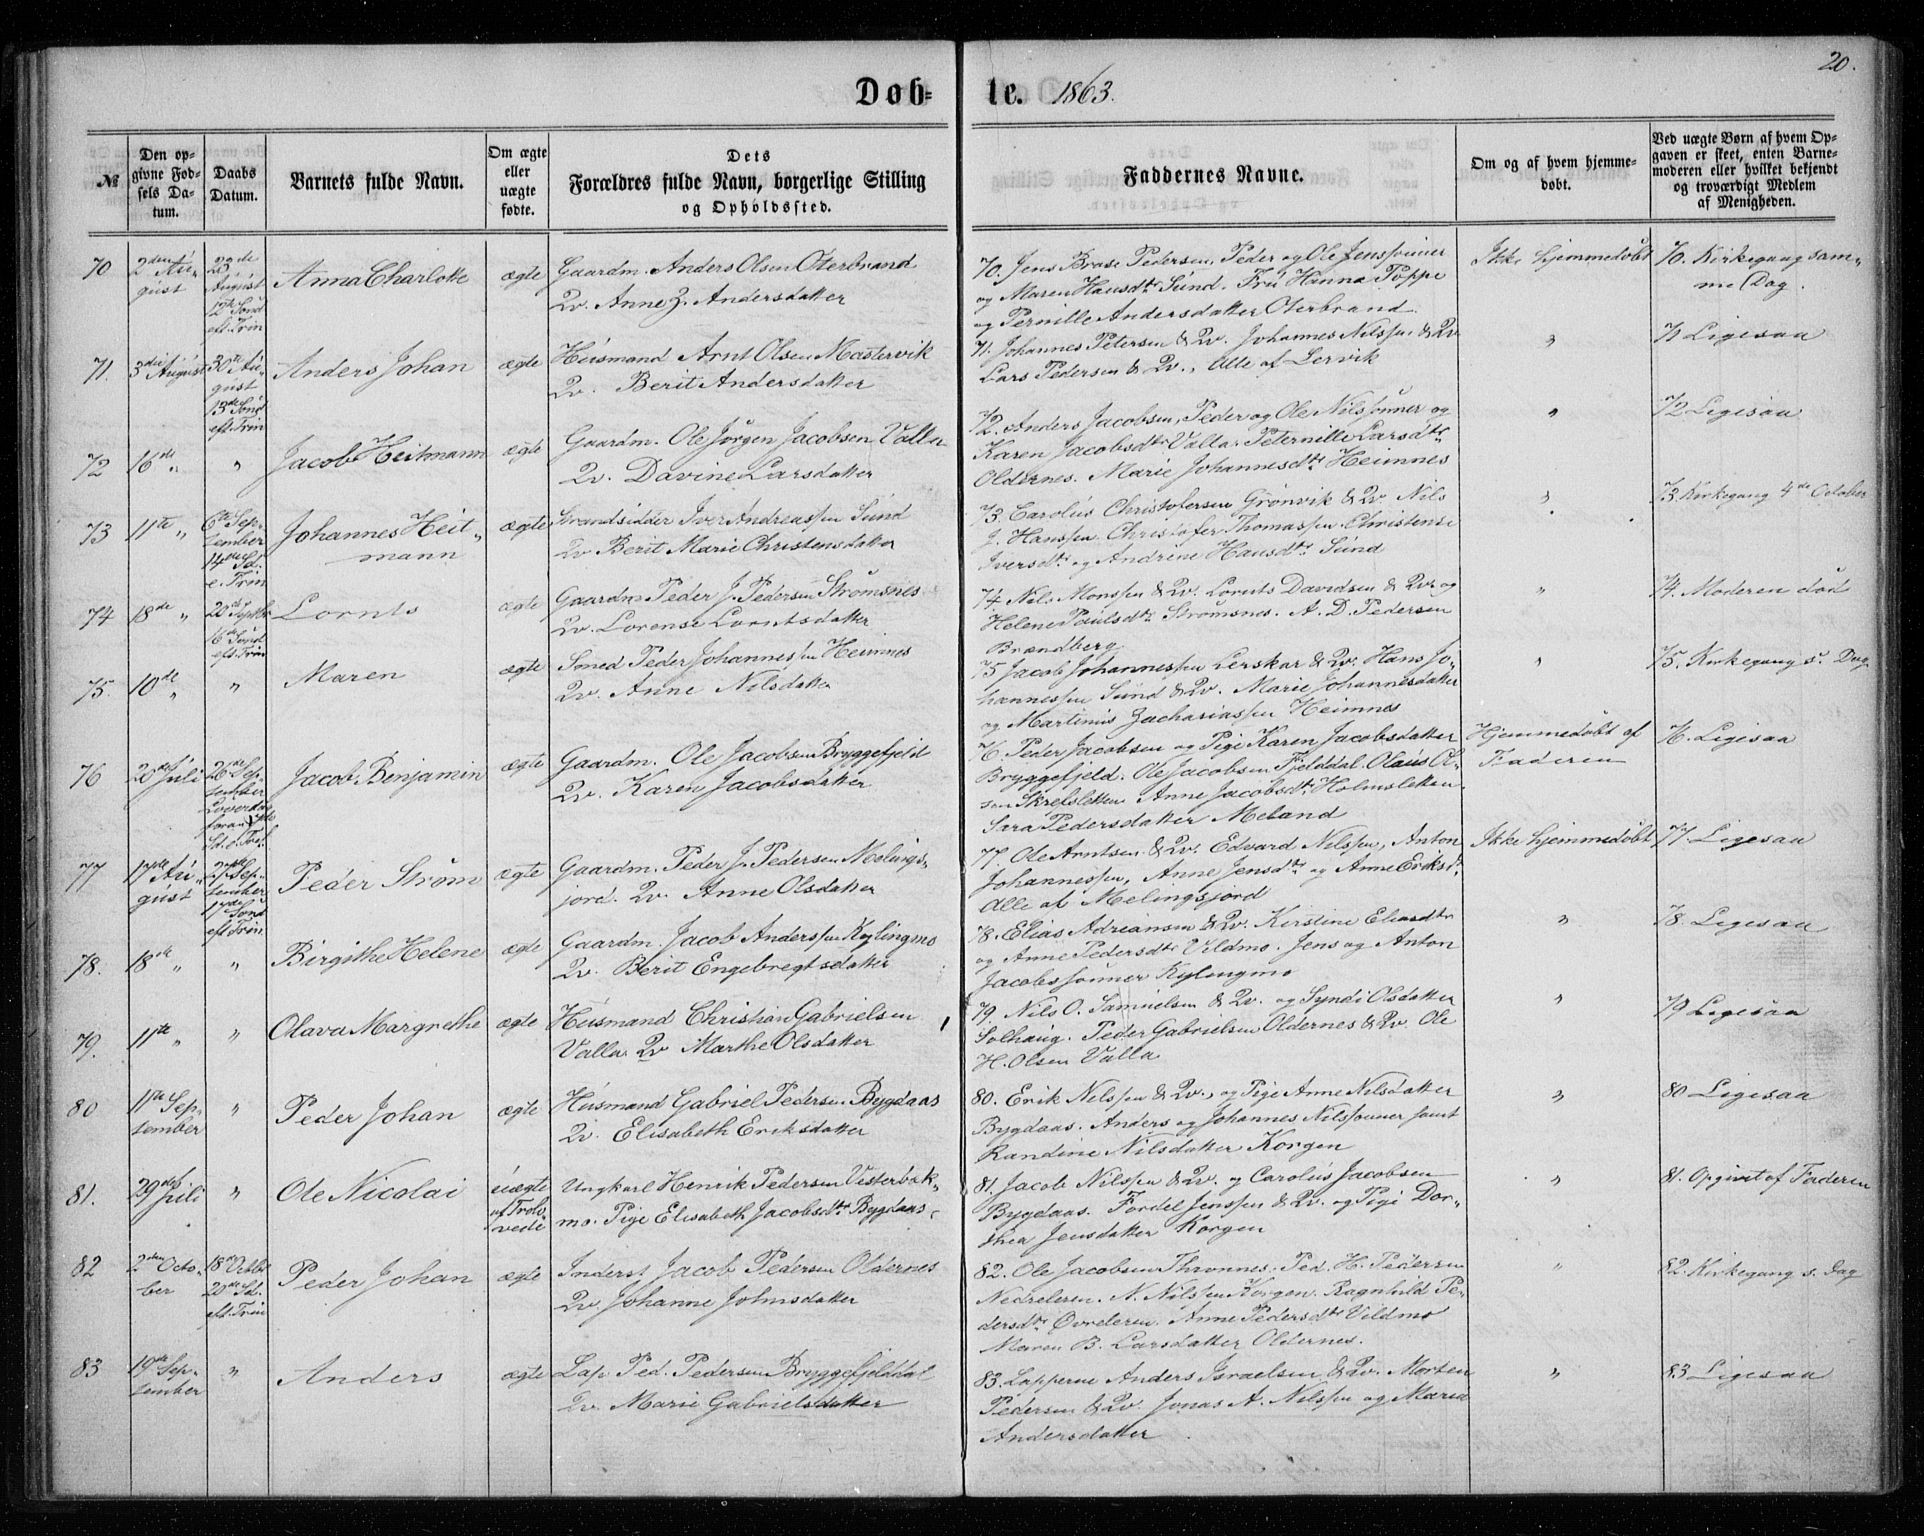 20.
Døb= te. 1863.
№
Den op=
givne Fød=
sels Da=
tum.
Daabs
Datum.
Barnets fulde Navn.
Om ægte
eller
uægte
fødte.
Dets
Forældres fulde Navn, borgerlige Stilling
og Opholdssted.
Faddernes Navne.
Om og af hvem hjemme=
døbt.
Ved uægte Børn af hvem Op=
gaven er skeet, enten Barne=
moderen eller hvilket bekjendt
og troværdigt Medlem
af Menigheden.
70
2den Au=
gust
23de
August
12te Sønd
eft. Trin
Anna Charlotte
ægte
Gaardm. Anders Olsen Oterbrand
Qv. Anne Z. Andersdatter
70. Jens Brase Pedersen, Peder og Ole Jenssønner
og Maren Hansdtr Sund. Fru Hanna Poppe
og Pernille Andersdatter Oterbrand.
Ikke hjemmedøbt
70. Kirkegang sam=
me Dag.
71.
3die August
30te Au=
gust
13de Sønd
eft. Trin
Anders Johan
ægte
Huusmand Arnt Olsen Mastervik
Qv. Berit Andersdatter
71. Johannes Petersen & Qv. Johannes Nilssen & Qv
Lars Pedersen & Qv., Alle af Lervik
"
71 Ligesaa
72
16de "
"
Jacob Heitmann
ægte
Gaardm. Ole Jørgen Jacobsen Valla
Qv. Davine Larsdatter
72. Anders Jacobsen, Peder og Ole Nilssønner og
Karen Jacobsdtr Valla. Peternille Larsdtr
Oldernes. Marie Johannesdtr Heimnes
"
72 Ligesaa
73
11te "
6te Sep=
tember
14de Sd.
e. Trin
Johannes Heit=
mann
ægte
Strandsidder Iver Andreassen Sund
Qv Berit Marie Christensdatter
73. Carolus Christofersen Grønvik & Qv. Nils
J. Hanssen. Christofer Thomassen. Christense
Iversdtr og Andrine Hansdtr Sund
"
73. Kirkegang 4de October
74
18de "
20de Septbr
16de Sønd
eft. Trin
Lornts
ægte
Gaardm Peder J. Pedersen Strømsnes
Qv. Lorense Lorntsdatter
74 Nils Monssen & Qv. Lornts Davidsen & Qv og
Helene Paulsdtr Strømsnes. A. D. Pedersen
Brændberg
"
74. Moderen død
75.
10de "
"
Maren
ægte
Smed Peder Johannessen Heimnes
Qv. Anne Nilsdatter
75 Jacob Johannessen Lerskar & Qv. Hans Jo=
hannessen Sund & Qv. Marie Johannesdatter
og Martinus Zachariassen Heimnes
"
75. Kirkegang s. Dag
76
20de Juli
26de Sep=
tember
Jacob Benjamin
ægte
Gaardm. Ole Jacobsen Bryggefjeld
Qv. Karen Jacobsdatter
76. Peder Jacobsen og Pige Karen Jacobsdatter
Bryggefjeld. Ole Jacobsen Fjelddal. Olaus Ol=
sen Skrefsletten. Anne Jacobsdtr Holmsletten.
Sara Pedersdatter Meland
Hjemmedøbt af
Faderen
76. Ligesaa
77
17de Au=
gust
27de Sep=
tember
17de Sønd
eft. Trin
Peder Strøm
ægte
Gaardm. Peder J. Pedersen Melings=
jord. Qv. Anne Olsdatter
77. Ole Arntsen & Qv. Edvard Nilssen, Anton
Johannessen, Anne Jensdtr og Anne Eriksdtr
Alle af Melingsjord
Ikke hjemmedøbt
77. Ligesaa
78.
18de "
"
Birgithe Helene
ægte
Gaardm. Jacob Anderssen Kylingmo
Qv. Berit Engebregtsdatter
78. Elias Adriansen & Qv. Kirstine Eliasdtr
og Anne Pedersdtr Vildmo. Jens og Anton
Jacobssønner Kylingmo
"
78. Ligesaa
79.
11te "
"
Olava Margrethe
ægte
Huusmand Christian Gabrielsen
Valla. Qv Marthe Olsdatter
79. Nils O. Samuelsen & Qv. og Syndi Olsdatter
Solhaug. Peder Gabrielsen Oldernes & Qv. Ole
H. Olsen Valla
"
79 Ligesaa
80
11te Sep=
tember
"
Peder Johan
ægte
Huusmand Gabriel Pedersen Bygdaas
Qv. Elisabeth Eriksdatter
80. Erik Nelssen & Qv., og Pige Anne Nilsdatter
Bygdaas. Anders og Johannes Nilssønner samt
Randine Nilsdatter Korgen
"
80 Ligesaa
81.
29de Juli
"
Ole Nicolai
uægte
Ungkarl Henrik Pedersen Vesterbæk=
mo. Pige Elisabeth Jacobsdtr Bygdaas
81. Jacob Nilssen & Qv. og Carolus Jacobsen
Bygdaas. Fordel Jenssen & Qv. og Pige Dor=
thea Jensdatter Korgen
"
81. Opgivet af Faderen
82
2den Octo=
ber
18de Octbr
20de Sd.
eft. Trin
Peder Johan
ægte
Inderst Jacob Pedersen Oldernes
Qv. Johanne Johnsdatter
82. Ole Jacobsen Thronnes. Ped. H. Pedersen
Nedreleren. N. Nilssen Korgen. Ragnhild Pe=
dersdtr Øvreleren. Anne Pedersdtr Vildmo
Maren B. Larsdatter Oldernes.
"
82. Kirkegang s. Dag
83
19de Sep=
tember
"
Anders
ægte
Lap Ped. Pedersen Bryggefjelddal
Qv. Marie Gabrielsdatter
83. Lapperne Anders Israelsen & Qv. Morten
Pedersen & Qv. Jonas A. Nilssen og Maria
Andersdatter
"
83 Ligesaa